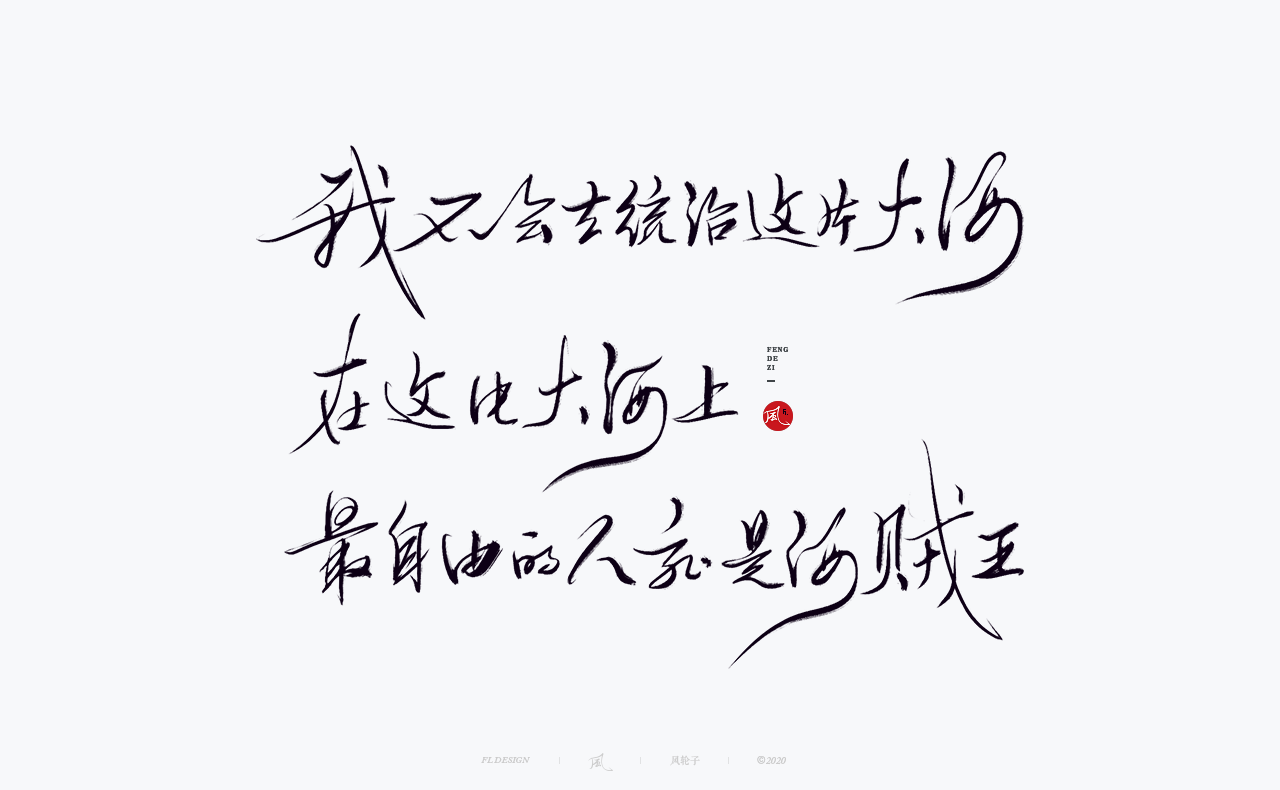 我不会去统治这片大海
在这片大海上
FENG
DE
ZI
風
最自由的人就是海贼王
FL.DESIGN
風
风轮子
©2020